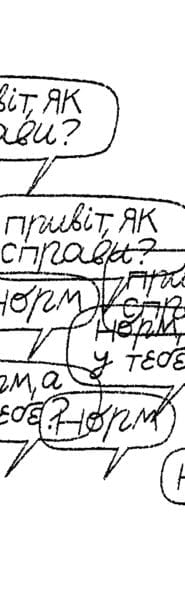 віт, як
ави?
привіт, як
справи?
при
спра
норм
норм,
у тебе
рм, а
ебе?
норм
н